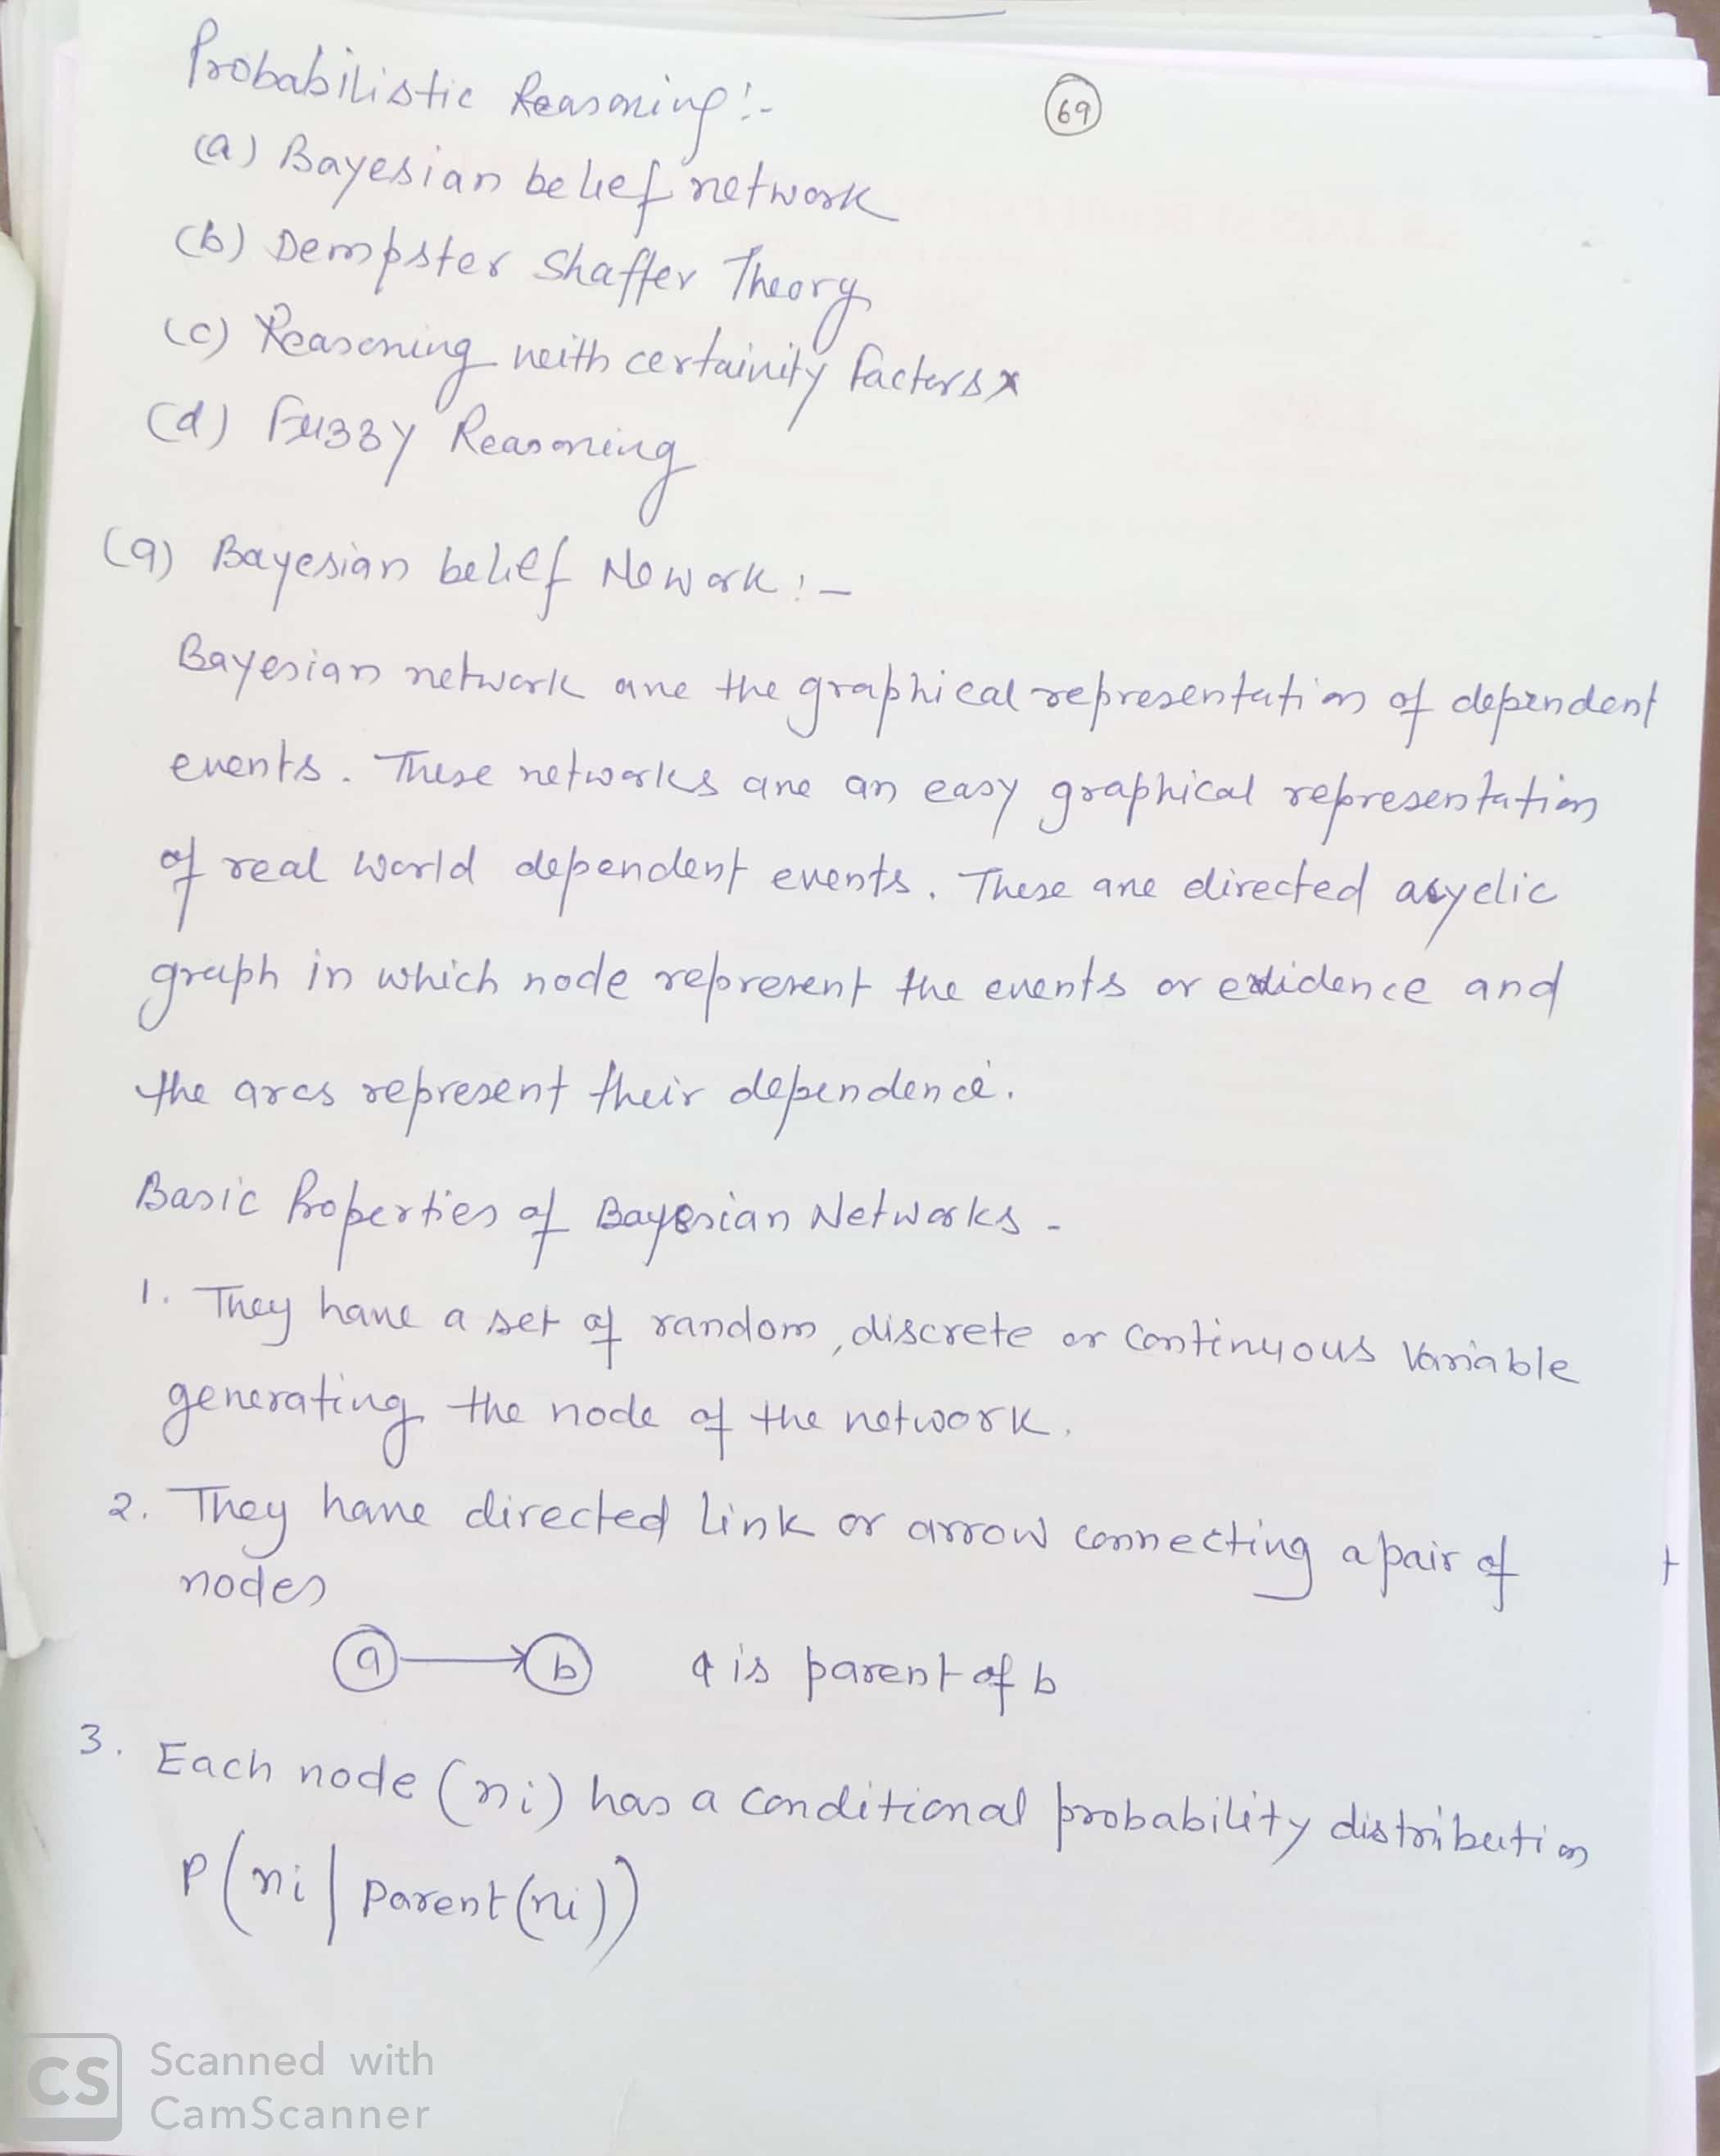 Probabilistic Reasoning :-
69
(a) Bayesian belief network
(b) Dempster Shaffer Theory
(c) Reasoning with certainity factors x
(d) Fuzzy Reasoning
(a) Bayesian belief Nework :-
Bayesian network are the graphical representation of dependent
events. These networks are an easy graphical representation
of real world dependent events. These are directed acyclic
graph in which node represent the events or evidence and
the arcs represent their dependence.
Basic Properties of Bayesian Networks -
1. They have a set of random, discrete or continuous variable
generating the node of the network.
2. They have directed link or arrow connecting a pair of
nodes
a b a is parent of b
3. Each node (ni) has a conditional probability distribution
P(ni | Parent(ni))
CS Scanned with
CamScanner